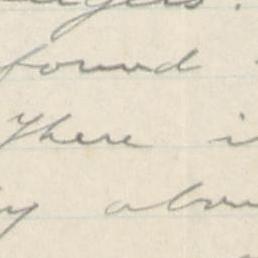 found
There i
y abou